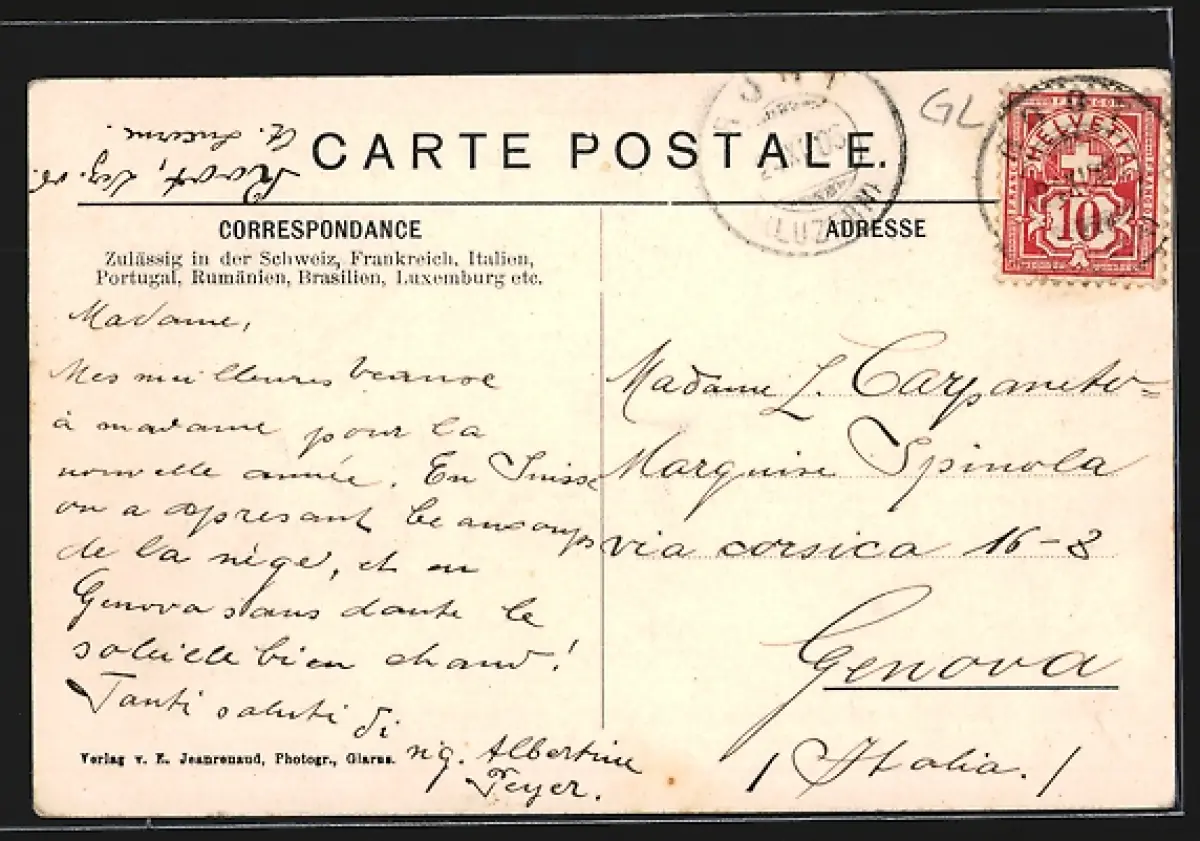 CARTE POSTALE.
GL
LUZERN
HELVETIA
FRANCO
10
Luzern
CORRESPONDANCE
Zulässig in der Schweiz, Frankreich, Italien,
Portugal, Rumänien, Brasilien, Luxemburg etc.
ADRESSE
Madame,
Mes meilleures
à madame pour la
nouvelle année. En Suisse
on a apresant beaucoups
de la nége, et en
Genova sans doute le
soleille bien chaud!
Tanti saluti di
sig. Albertine
Feyer.
Verlag v. E. Jeanrenaud, Photogr., Glarus.
Madame L. Carpaneto=
Marquise Spinola
via corsica 16-8
Genova
/ Italia. /